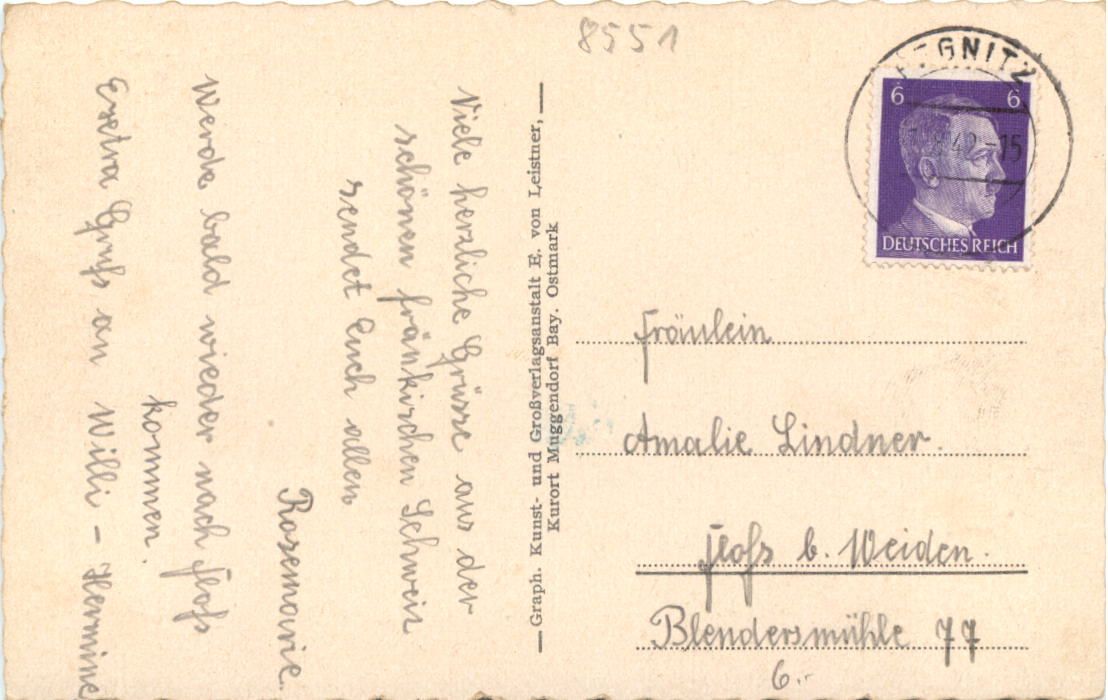 Viele herzliche Grüsse aus der
schönen fränkischen Schweiz
sendet Euch allen
Rosemarie.
Werde bald wieder nach Floß
kommen.
Extra Gruß an Willi – Hermine
Graph. Kunst- und Großverlagsanstalt E. von Leistner,
Kurort Muggendorf Bay. Ostmark
8551
EGNITZ
42-15
6 6
DEUTSCHES REICH
Fräulein
Amalie Lindner.
Floß b. Weiden.
Blendersmühle 77
6.-